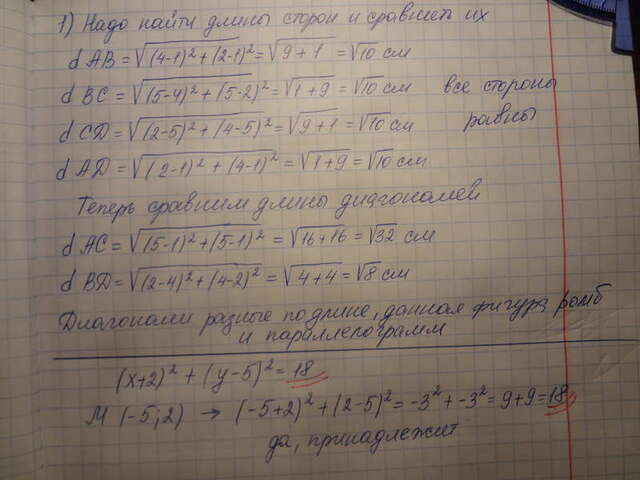 1) Надо найти длины сторон и сравнить их
d AB = √(4-1)² + (2-1)² = √9+1 = √10 см
d BC = √(5-4)² + (5-2)² = √1+9 = √10 см все стороны
d CD = √(2-5)² + (4-5)² = √9+1 = √10 см равны
d AD = √(2-1)² + (4-1)² = √1+9 = √10 см
Теперь сравним длины диагоналей
d AC = √(5-1)² + (5-1)² = √16+16 = √32 см
d BD = √(2-4)² + (4-2)² = √4+4 = √8 см
Диагонали разные по длине, данная фигура ромб
и параллелограмм
(x+2)² + (y-5)² = 18
M (-5; 2) → (-5+2)² + (2-5)² = -3² + -3² = 9+9 = 18
да, принадлежит